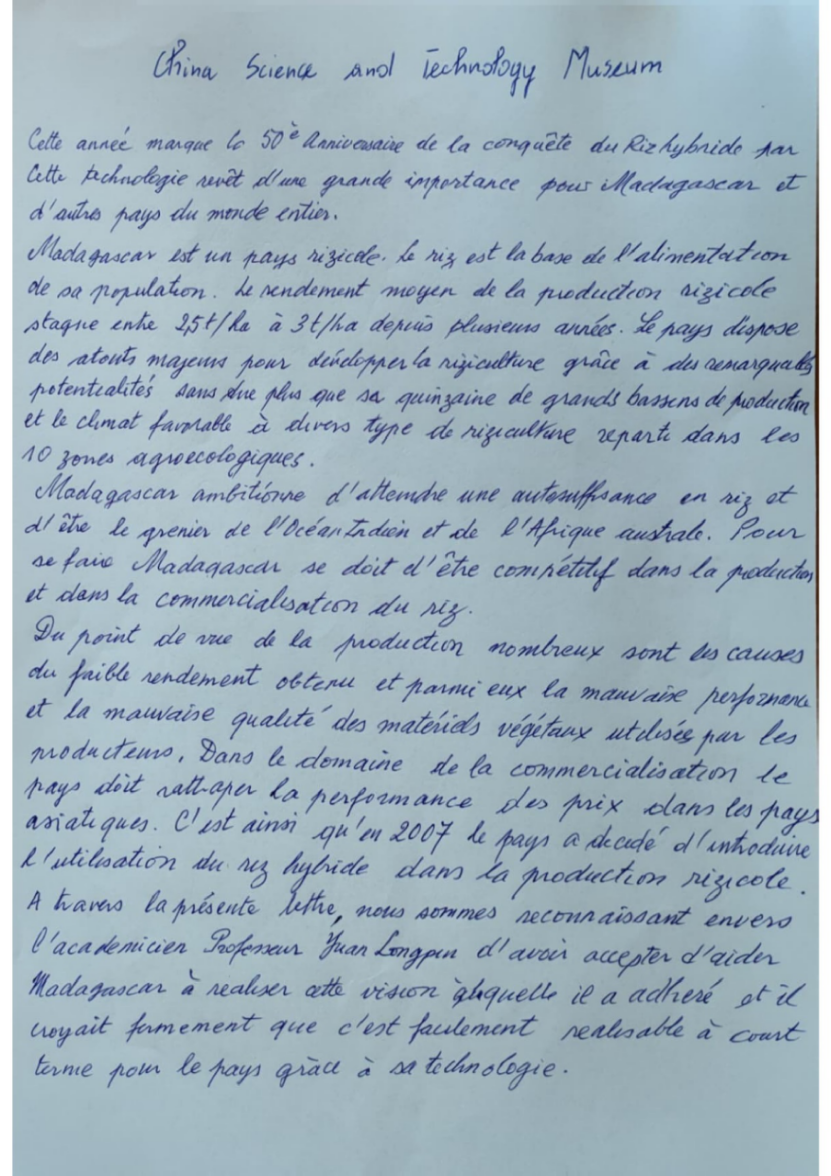 China Science and Technology Museum
Cette anneé marque le 50è Anniversaire de la conquête du Riz hybride par
Cette technologie revêt d'une grande importance pour Madagascar et
d'autres pays du monde entier.
Madagascar est un pays rizicole. Le riz est la base de l'alimentation
de sa population. Le rendement moyen de la production rizicole
stagne entre 2,5t/ha à 3t/ha depuis plusieurs années. Le pays dispose
des atouts majeurs pour développer la riziculture grâce à des remarquables
potentialités sans dire plus que sa quinzaine de grands bassins de production
et le climat favorable à divers type de riziculture reparti dans les
10 zones agroecologiques.
Madagascar ambitionne d'atteindre une autosuffisance en riz et
d'être le grenier de l'Océan Indien et de l'Afrique australe. Pour
se faire Madagascar se doit d'être compétitif dans la production
et dans la commercialisation du riz.
Du point de vue de la production nombreux sont les causes
du faible rendement obtenu et parmi eux la mauvaise performance
et la mauvaise qualité des matériels végétaux utilisés par les
producteurs. Dans le domaine de la commercialisation le
pays doit rattraper la performance des prix dans les pays
asiatiques. C'est ainsi qu'en 2007 le pays a decidé d'introduire
l'utilisation du riz hybride dans la production rizicole.
A travers la présente lettre, nous sommes reconnaissant envers
l'academicien Professeur Yuan Longpin d'avoir accepter d'aider
Madagascar à realiser cette vision à laquelle il a adheré et il
croyait fermement que c'est facilement realisable à court
terme pour le pays grâce à sa technologie.